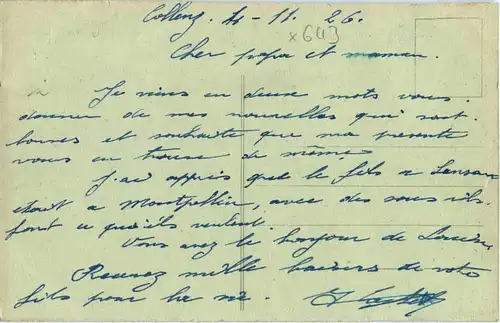 Collenz. 4-11-26.
x643
Cher papa et maman.
Je viens en deux mots vous
donner de mes nouvelles qui sont
bonnes et souhaite que ma présente
vous en trouve de même.
J'ai appris que le fils a
était a Montpellier, avec des sous ils
font ce qu'ils veulent.
Vous avez le bonjour de
Recevez mille baisers de votre
fils pour la vie.